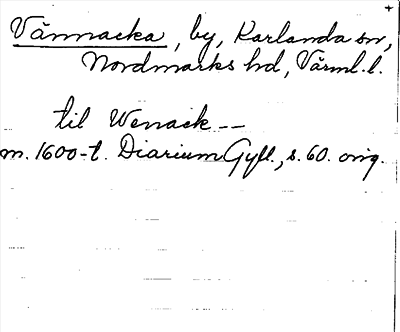 Vännacka, by, Karlanda sn,
Nordmarks hd, Värml. l.
til Wenack--
m. 1600-t. Diarium Gyll., s. 60. orig.